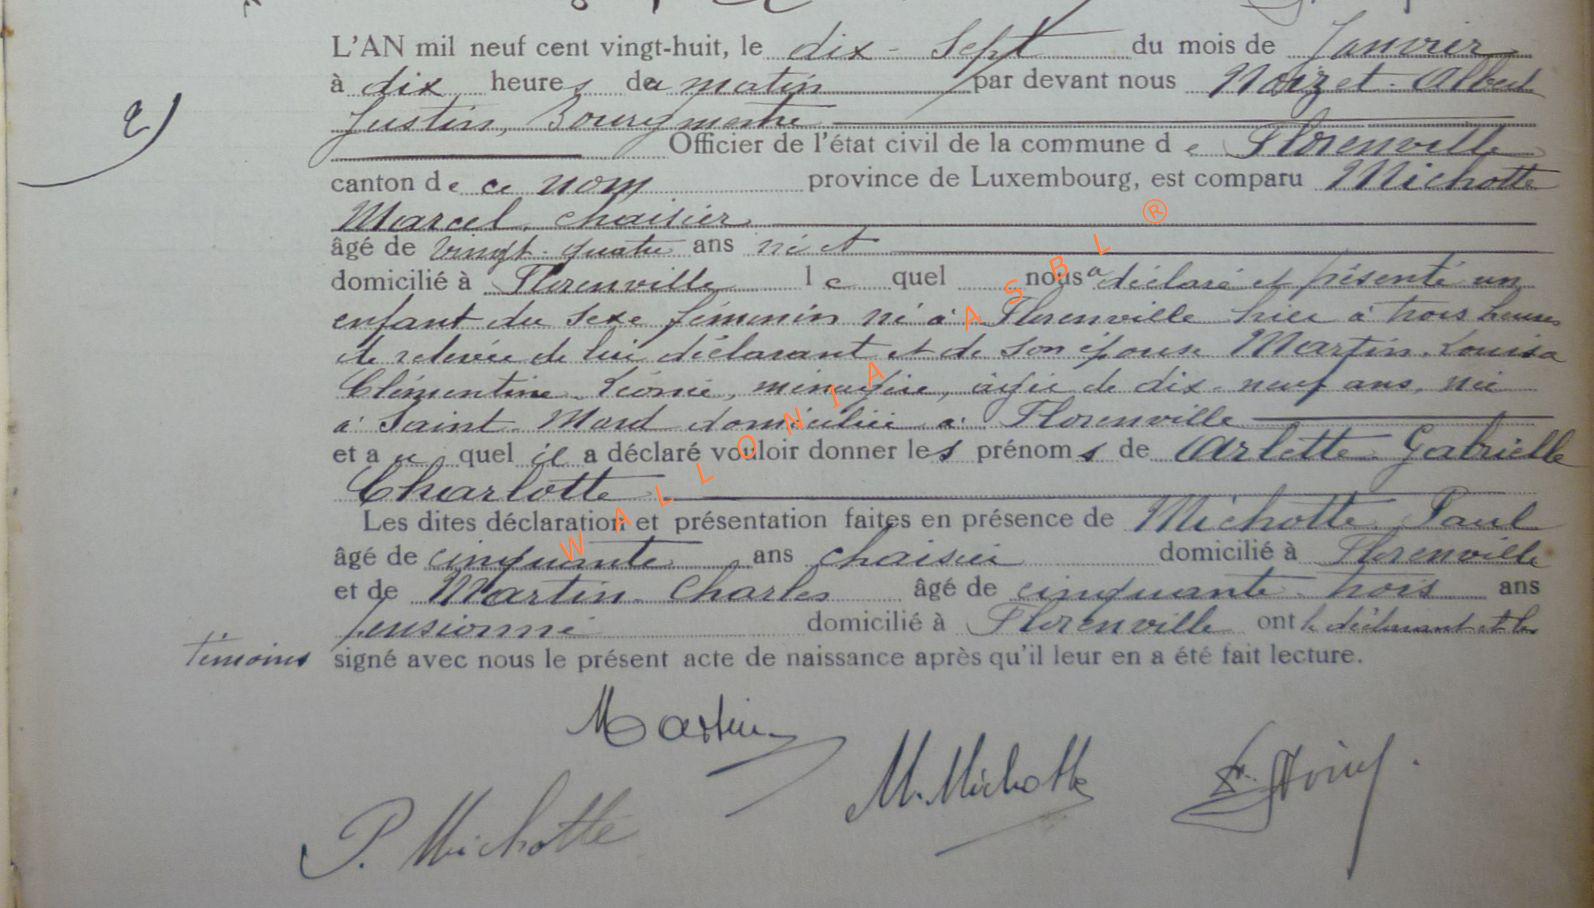 L'AN mil neuf cent vingt-huit, le dix-sept du mois de Janvier
à dix heures du matin par devant nous Noizet Albert
2)
Justin, Bourgmestre
Officier de l'état civil de la commune de Florenville
canton de ce nom province de Luxembourg, est comparu Michotte
Marcel, chaisier
âgé de vingt-quatre ans né et
domicilié à Florenville lequel nous a déclaré et présenté un
enfant du sexe féminin né à Florenville hier à trois heures
de relevée de lui déclarant et de son épouse Martin Louisa
Clémentine Léonie, ménagère, âgée de dix-neuf ans, née
à Saint-Mard domiciliée à Florenville
et au quel il a déclaré vouloir donner les prénoms de Arlette Gabrielle
Charlotte
Les dites déclaration et présentation faites en présence de Michotte Paul
âgé de cinquante ans chaisier domicilié à Florenville
et de Martin Charles âgé de cinquante trois ans
pensionné domicilié à Florenville ont le déclarant et les
témoins signé avec nous le présent acte de naissance après qu'il leur en a été fait lecture.
WALLONIA ASBL ®
Martin
M. Michotte
P. Michotte